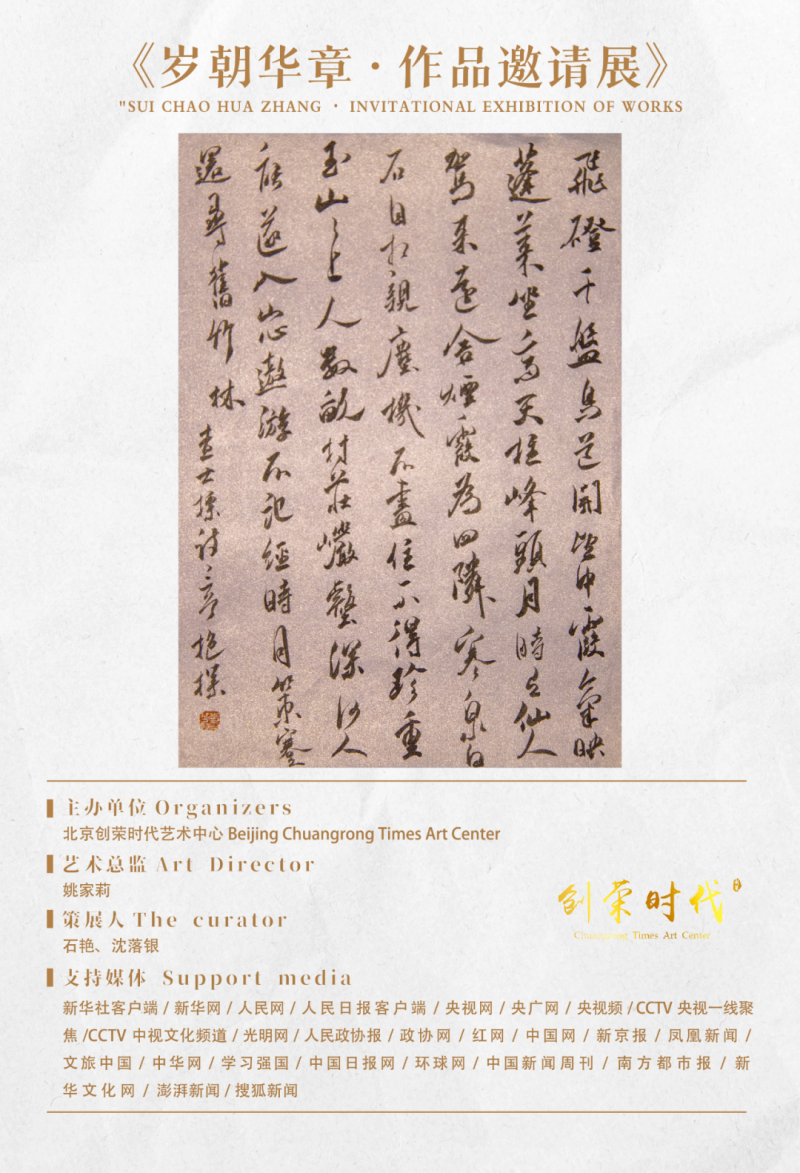 《岁朝华章·作品邀请展》
"SUI CHAO HUA ZHANG · INVITATIONAL EXHIBITION OF WORKS
飛磴千盤鳥道開空中霞氣映
蓬萊坐高天柱峰頭月時与仙人
駕来遠舍煙霞為四隣寒泉白
石自相親塵機不盡住不得珍重
玉山〻上人數畝村莊巖壑深何人
能遂入山心遨游不記經時月策蹇
還尋舊竹林 查士標詩
主办单位 Organizers
北京创荣时代艺术中心 Beijing Chuangrong Times Art Center
艺术总监 Art Director
姚家莉
策展人 The curator
石艳、沈落银
创荣时代
Chuangrong Times Art Center
支持媒体 Support media
新华社客户端 / 新华网 / 人民网 / 人民日报客户端 / 央视网 / 央广网 / 央视频 / CCTV 央视一线聚
焦 /CCTV 中视文化频道 / 光明网 / 人民政协报 / 政协网 / 红网 / 中国网 / 新京报 / 凤凰新闻 /
文旅中国 / 中华网 / 学习强国 / 中国日报网 / 环球网 / 中国新闻周刊 / 南方都市报 / 新
华文化网 / 澎湃新闻 / 搜狐新闻